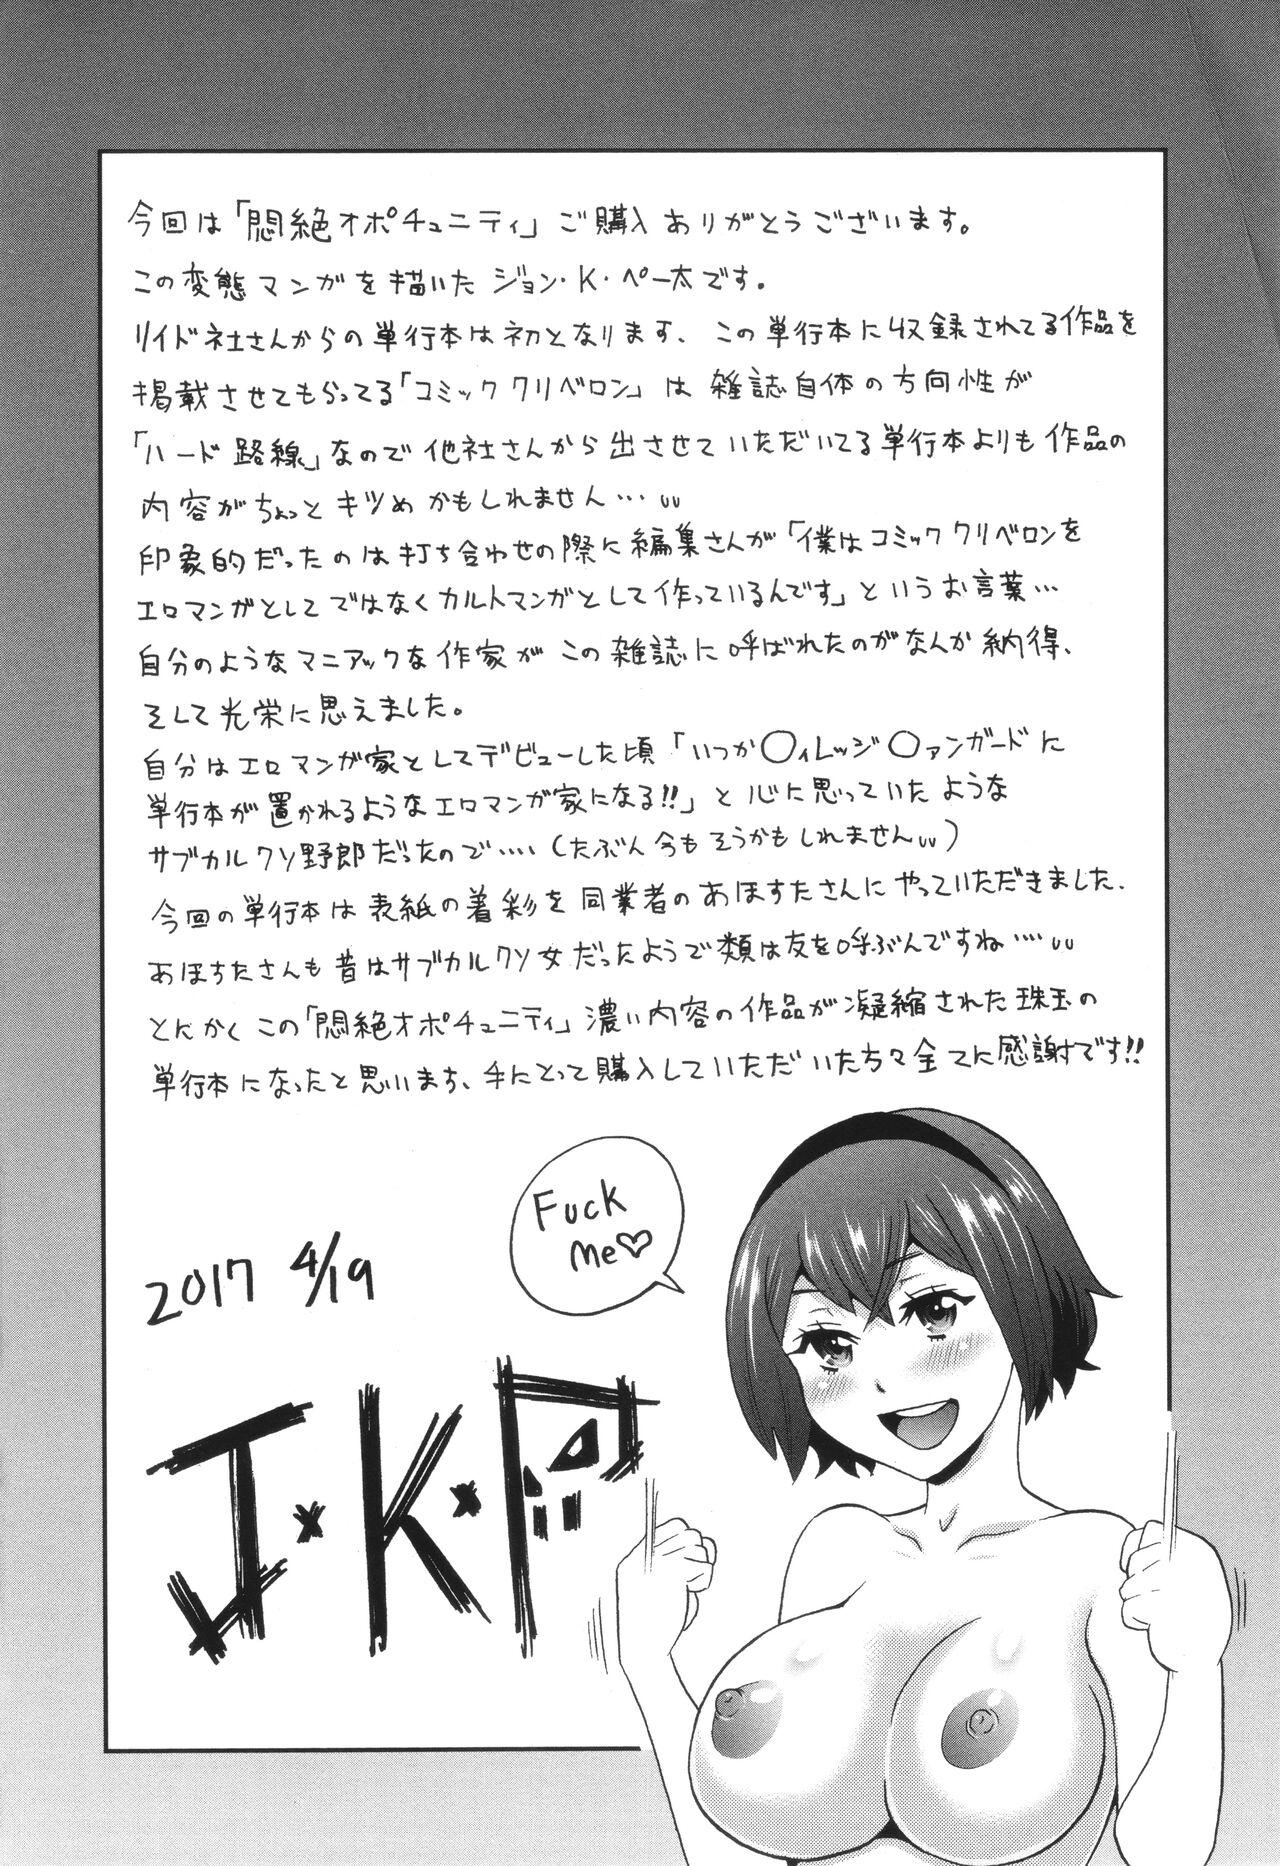 今回は「悶絶オポチュニティ」ご購入ありがとうございます。
この変態マンガを描いたジョン・K・ペー太です。
リイド社さんからの単行本は初となります、この単行本に収録されてる作品を
掲載させてもらってる「コミッククリベロン」は雑誌自体の方向性が
「ハード路線」なので他社さんから出させていただいてる単行本よりも作品の
内容がちょっとキツめかもしれません…υυ
印象的だったのは打ち合わせの際に編集さんが「僕はコミッククリベロンを
エロマンガとしてではなくカルトマンガとして作っているんです」というお言葉…
自分のようなマニアックな作家がこの雑誌に呼ばれたのがなんか納得、
そして光栄に思えました。
自分はエロマンガ家としてデビューした頃「いつか〇ィレッジ〇ァンガードに
単行本が置かれるようなエロマンガ家になる!!」と心に思っていたような
サブカルクソ野郎だったので…(たぶん今もそうかもしれませんυυ)
今回の単行本は表紙の着彩を同業者のあほすたさんにやっていただきました、
あほすたさんも昔はサブカルクソ女だったようで類は友を呼ぶんですね…υυ
とにかくこの「悶絶オポチュニティ」濃い内容の作品が凝縮された珠玉の
単行本になったと思います、手にとって購入していただいた方々全てに感謝です!!
Fuck
Me♡
2017 4/19
J・K・P